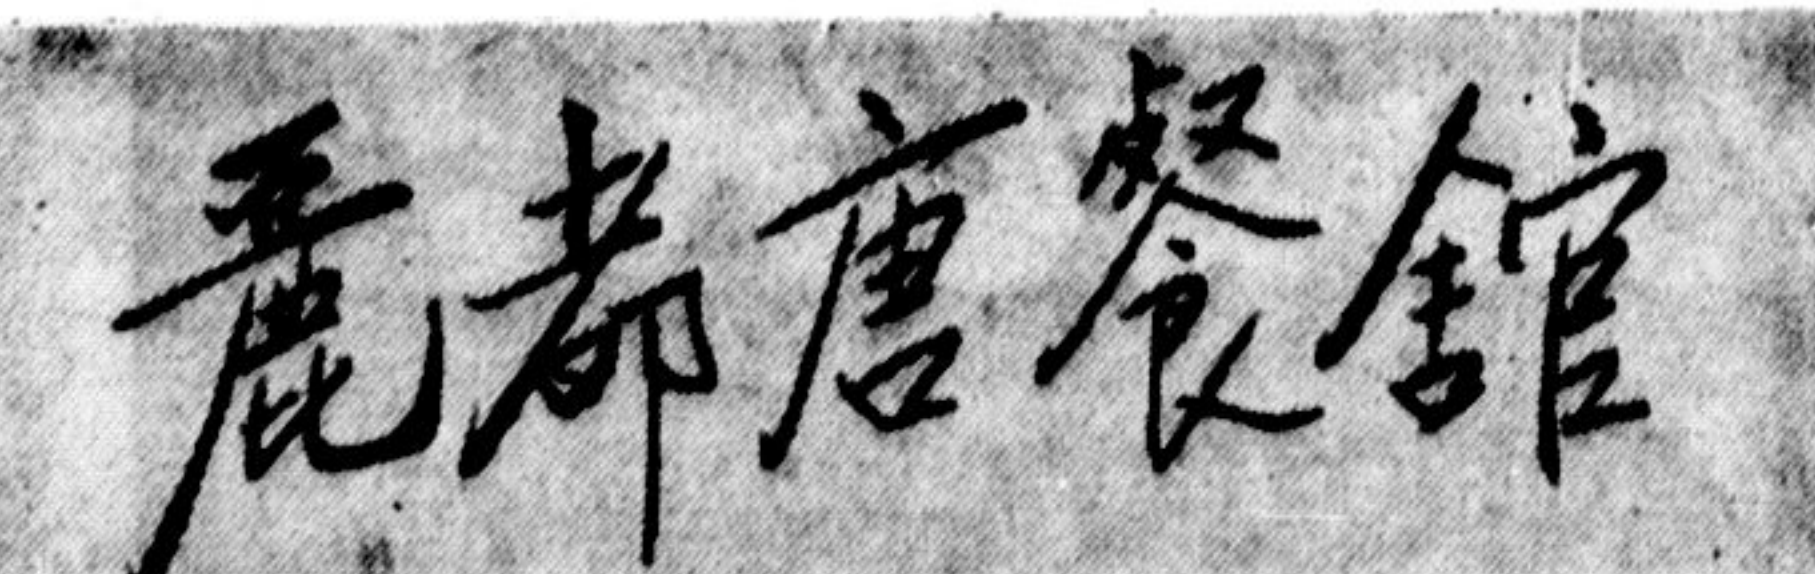 麗都唐餐舘